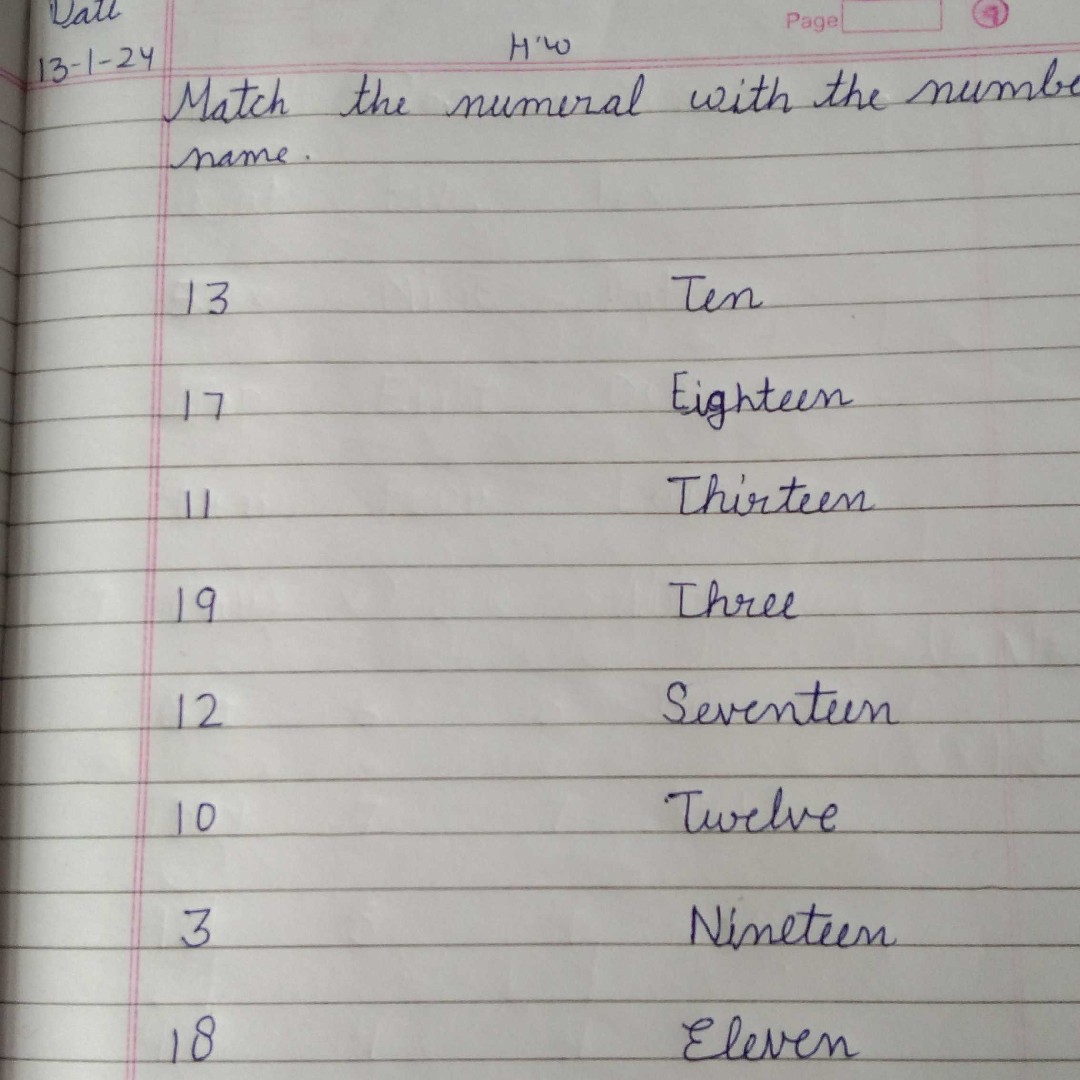 Date
Page 9
13-1-24
H.W
Match the numeral with the numbe
name.
13 Ten
17 Eighteen
11 Thirteen
19 Three
12 Seventeen
10 Twelve
3 Nineteen
18 Eleven